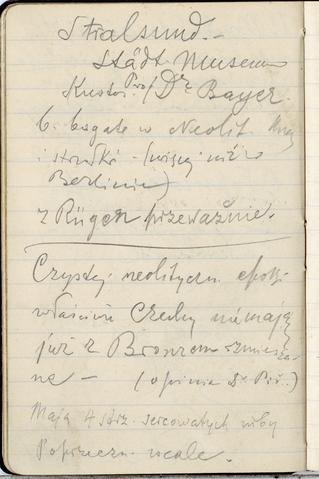 Stralsund. -
Städt. Museum
Kustos Prof. Dr. Bayer.
b. bogate w Neolit.
i (więcej niż w
Berlinie)
z Rügen przeważnie.
Czystej neolityczn. epoki
właściwie Czechy nie mają
już z Bronzem zmiesza-
ne - (opinia Dr. Píč.)
Mają 4 sercowatych niby
Poprzeczn. wcale.